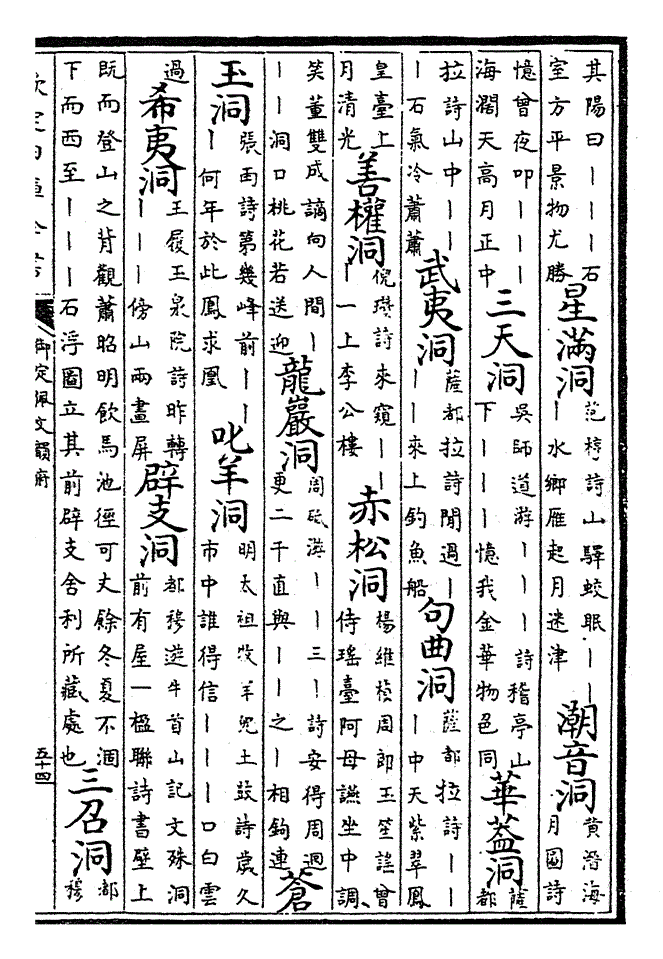 其陽曰丨丨丨石
室方平景物尤勝
星滿洞
范梈詩山驛蛟眠丨丨
丨水鄉雁起月迷津
潮音洞
黄溍海
月圖詩
憶曾夜叩丨丨丨
海濶天高月正中
三天洞
吳師道游丨丨丨詩稽亭山
下丨丨丨憶我金華物色同
華葢洞
薩
都
拉詩山中丨丨丨
丨石氣冷蕭蕭
武夷洞
薩都拉詩聞過丨
丨丨來上釣魚船
句曲洞
薩都拉詩丨丨
丨中天紫翠鳳
皇臺上
月清光
善權洞
倪瓚詩來窺丨丨
丨一上李公樓
赤松洞
楊維楨周郎玉笙謠曾
侍瑶臺阿母讌坐中調
笑董雙成謫向人間丨
丨丨洞口桃花若送迎
龍巖洞
周砥游丨丨三丨詩安得周迴
更二千直與丨丨之丨相鉤連
蒼
玉洞
張雨詩第幾峰前丨丨
丨何年於此鳳求凰
叱羊洞
明太祖牧羊兒土鼓詩歲久
市中誰得信丨丨丨口白雲
過
希夷洞
王履玉泉院詩昨轉
丨丨丨傍山兩畫屏
辟支洞
都穆遊牛首山記文殊洞
前有屋一楹聯詩書壁上
既而登山之背觀蕭昭明飲馬池徑可丈餘冬夏不涸
下而西至丨丨丨石浮圖立其前辟支舍利所藏處也
三召洞
都
穆
欽定四庫全書
御定佩文韻府
五十四